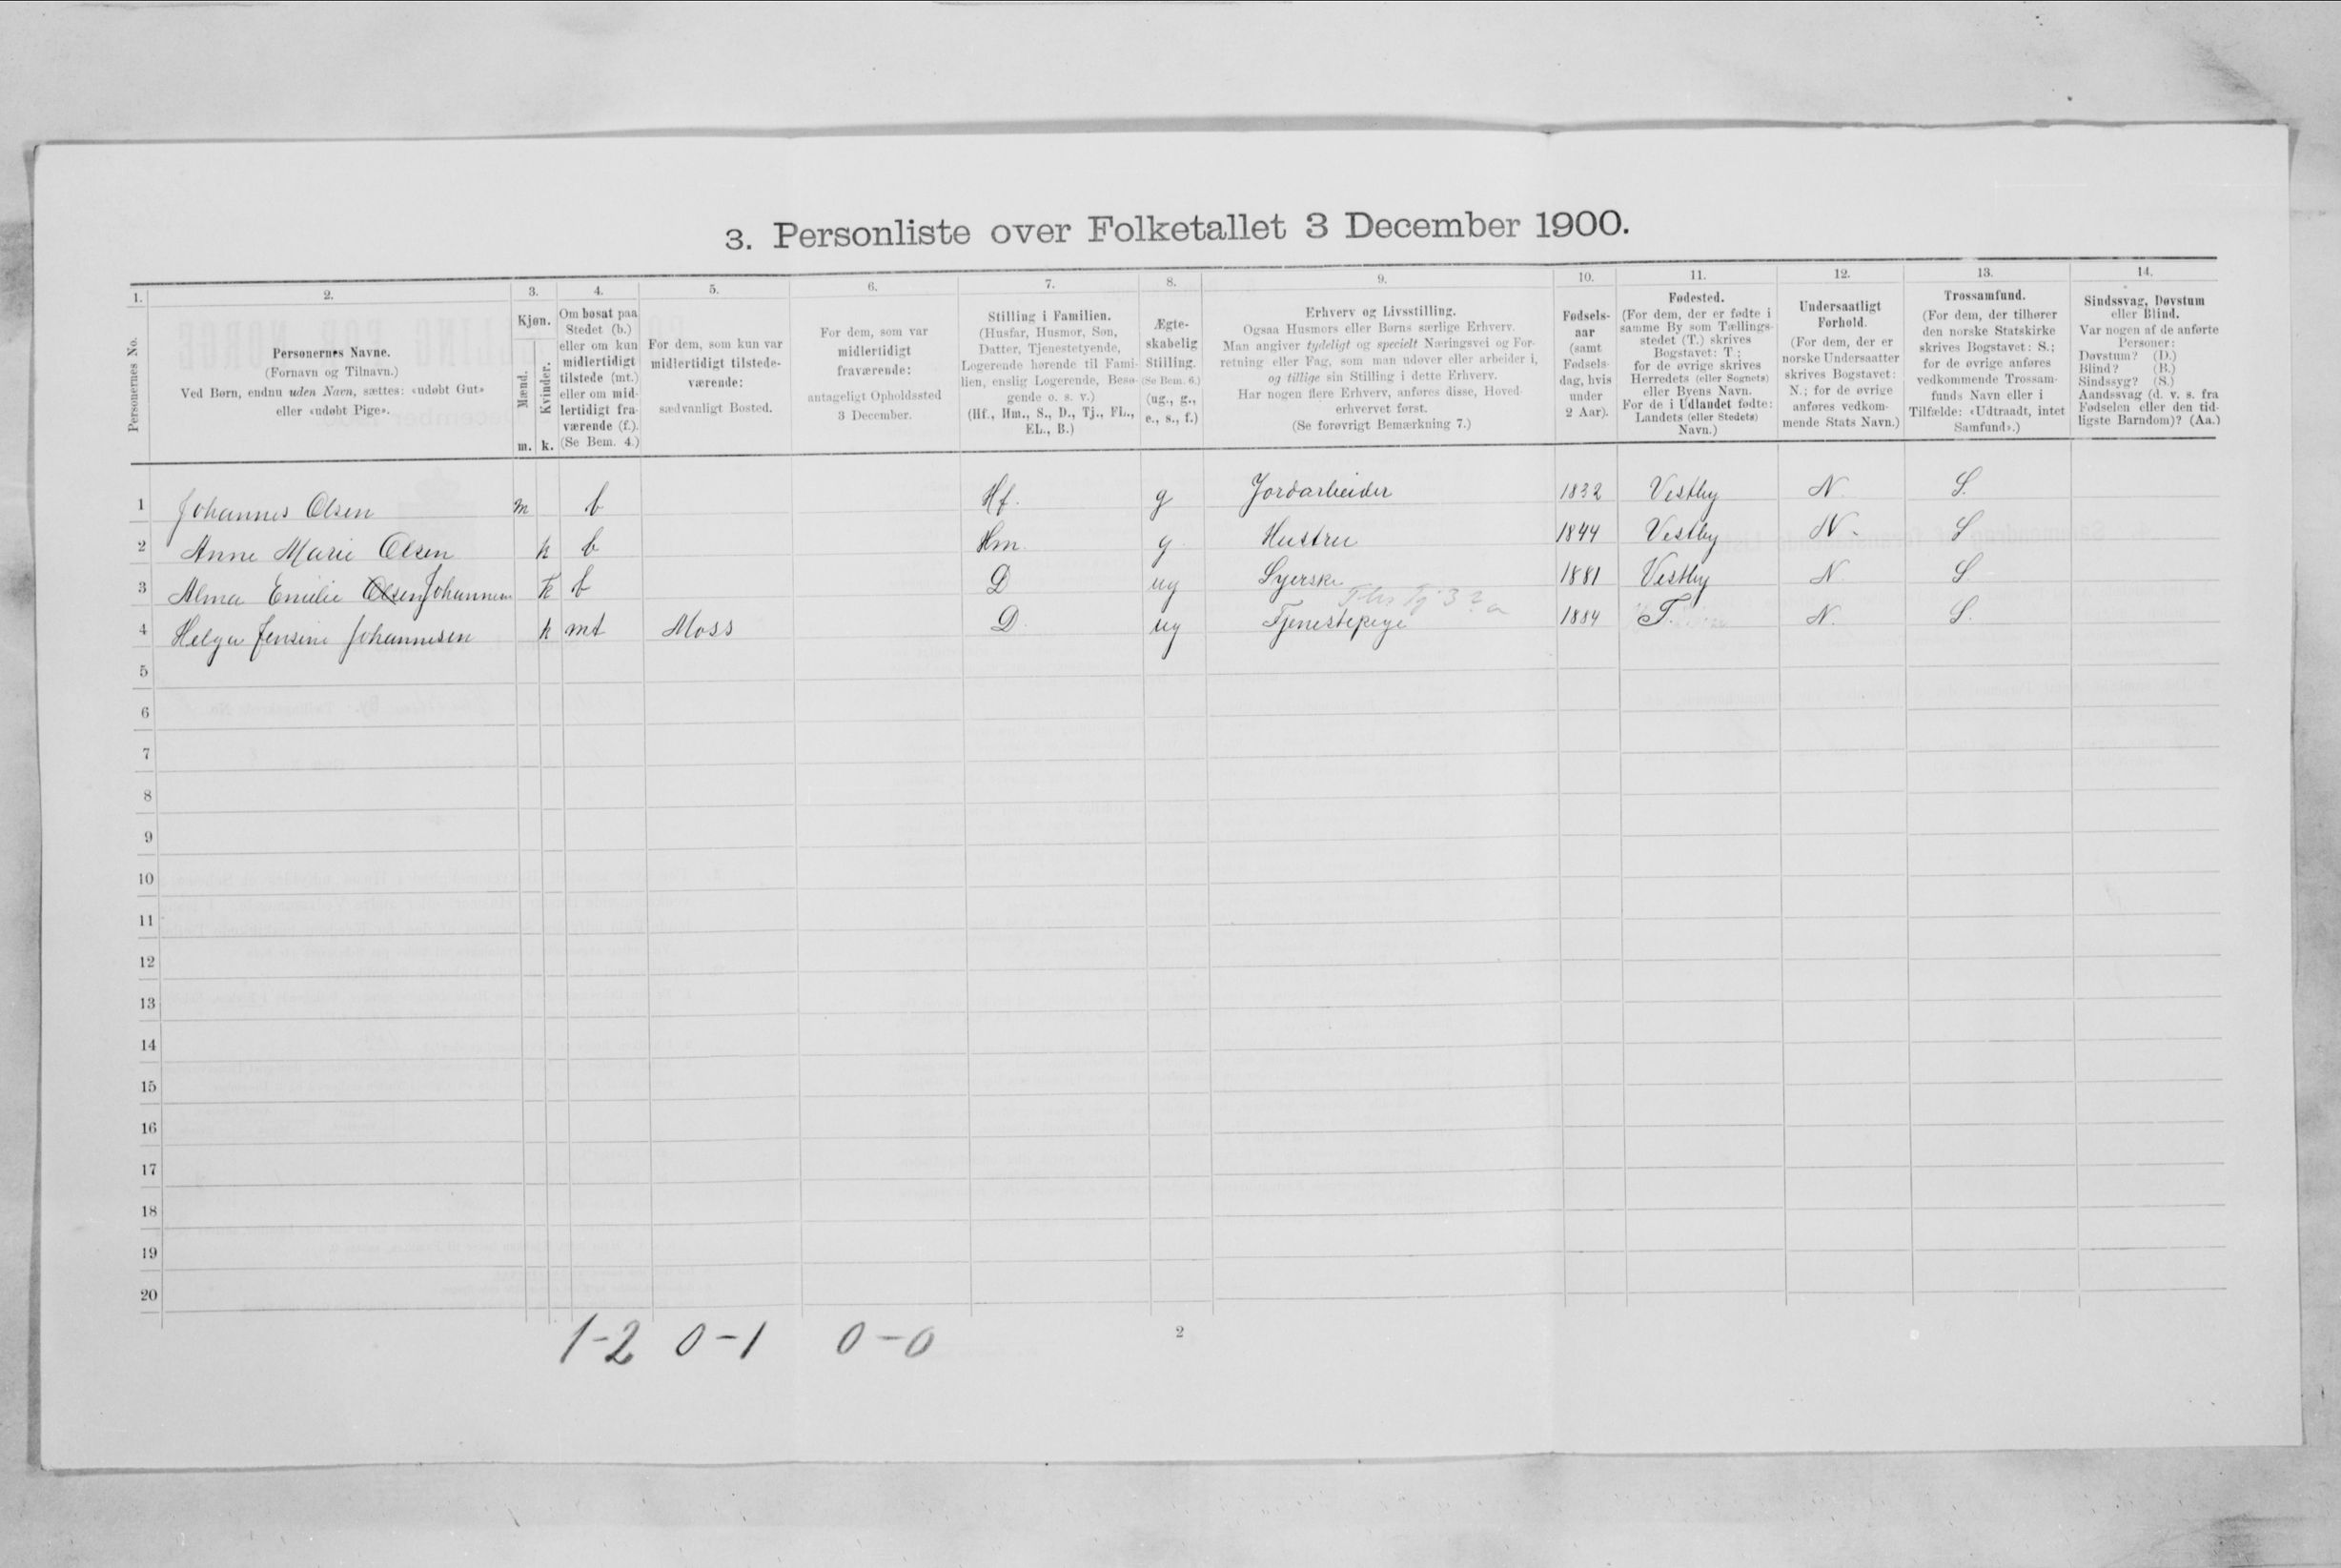 3. Personliste over Folketallet 3 December 1900.
1. 2. 3. 4. 5. 6. 7. 8. 9. 10. 11. 12. 13. 14.
Personernes No.
Personernes Navne.
(Fornavn og Tilnavn.)
Ved Børn, endnu uden Navn, sættes: «udøbt Gut»
eller «udøbt Pige».
Kjøn.
Mænd.
Kvinder.
m. k.
Om bosat paa
Stedet (b.)
eller om kun
midlertidigt
tilstede (mt.)
eller om mid-
lertidigt fra-
værende (f.).
(Se Bem. 4.)
For dem, som kun var
midlertidigt tilstede-
værende:
sædvanligt Bosted.
For dem, som var
midlertidigt
fraværende:
antageligt Opholdssted
3 December.
Stilling i Familien.
(Husfar, Husmor, Søn,
Datter, Tjenestetyende,
Logerende hørende til Fami-
lien, enslig Logerende, Besø-
gende o. s. v.)
(Hf., Hm., S., D., Tj., FL.,
EL., B.)
Ægte-
skabelig
Stilling.
(Se Bem. 6.)
(ug., g.,
e., s., f.)
Erhverv og Livsstilling.
Ogsaa Husmors eller Børns særlige Erhverv.
Man angiver tydeligt og specielt Næringsvei og For-
retning eller Fag, som man udøver eller arbeider i,
og tillige sin Stilling i dette Erhverv.
Har nogen flere Erhverv, anføres disse, Hoved-
erhvervet først.
(Se forøvrigt Bemærkning 7.)
Fødsels-
aar
(samt
Fødsels-
dag, hvis
under
2 Aar).
Fødested.
(For dem, der er fødte i
samme By som Tællings-
stedet (T.) skrives
Bogstavet: T.;
for de øvrige skrives
Herredets (eller Sognets)
eller Byens Navn.
For de i Udlandet fødte:
Landets (eller Stedets)
Navn.)
Undersaatligt
Forhold.
(For dem, der er
norske Undersaatter
skrives Bogstavet:
N.; for de øvrige
anføres vedkom-
mende Stats Navn.)
Trossamfund.
(For dem, der tilhører
den norske Statskirke
skrives Bogstavet: S.;
for de øvrige anføres
vedkommende Trossam-
funds Navn eller i
Tilfælde: «Udtraadt, intet
Samfund».)
Sindssvag, Døvstum
eller Blind.
Var nogen af de anførte
Personer:
Døvstum? (D.)
Blind? (B.)
Sindssyg? (S.)
Aandssvag (d. v. s. fra
Fødselen eller den tid-
ligste Barndom)? (Aa.)
1 Johannes Olsen m b Hf. g Jordarbeider 1832 Vestby N. S.
2 Anne Marie Olsen k b Hm. g Hustru 1844 Vestby N. S
3 Alma Emilie Olsen Johannesen k b D ug Syerske 1881 Vestby N. S
4 Helga Jensine Johannesen k mt Moss D. ug Tjenestepige 1884 T. N. S.
5
6
7
8
9
10
11
12
13
14
15
16
17
18
19
20
1-2 0-1 0-0
2